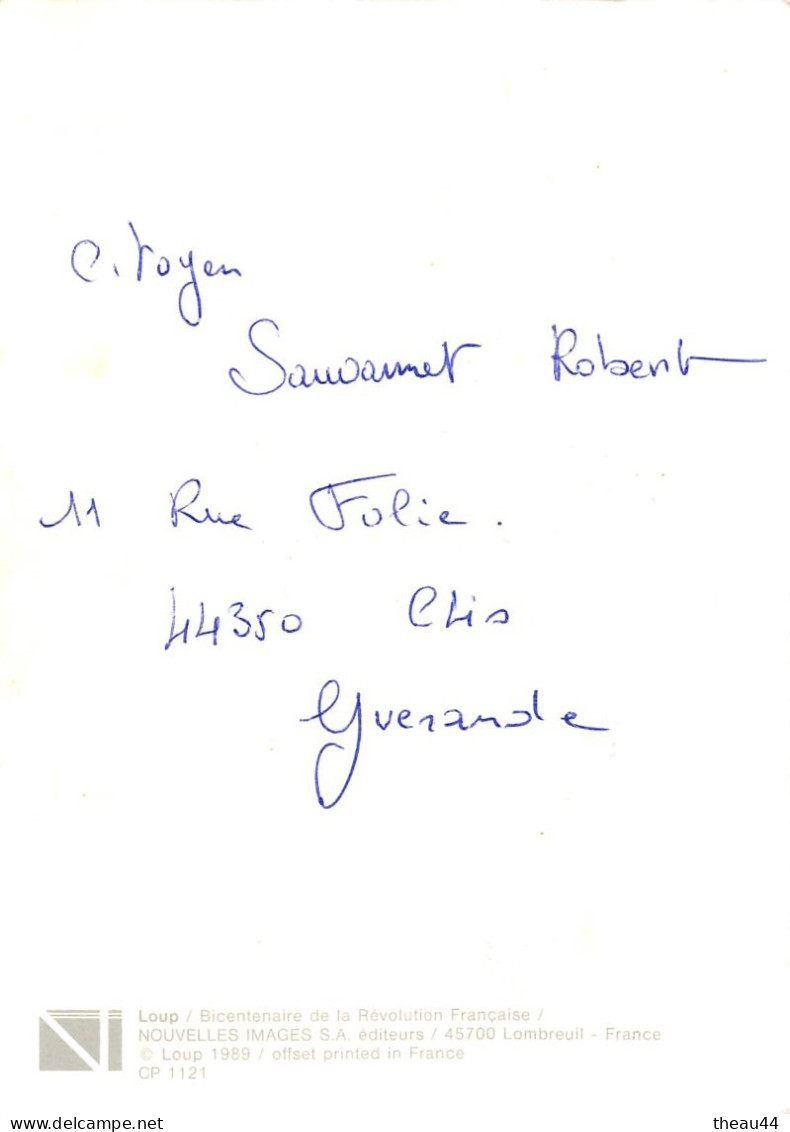 Citoyen
Sauvannet Robert
11 Rue Folie.
44350 Clis
Guerande
Loup / Bicentenaire de la Révolution Française /
NOUVELLES IMAGES S.A. éditeurs / 45700 Lombreuil - France
© Loup 1989 / offset printed in France
CP 1121
Delcampe.net
theau44